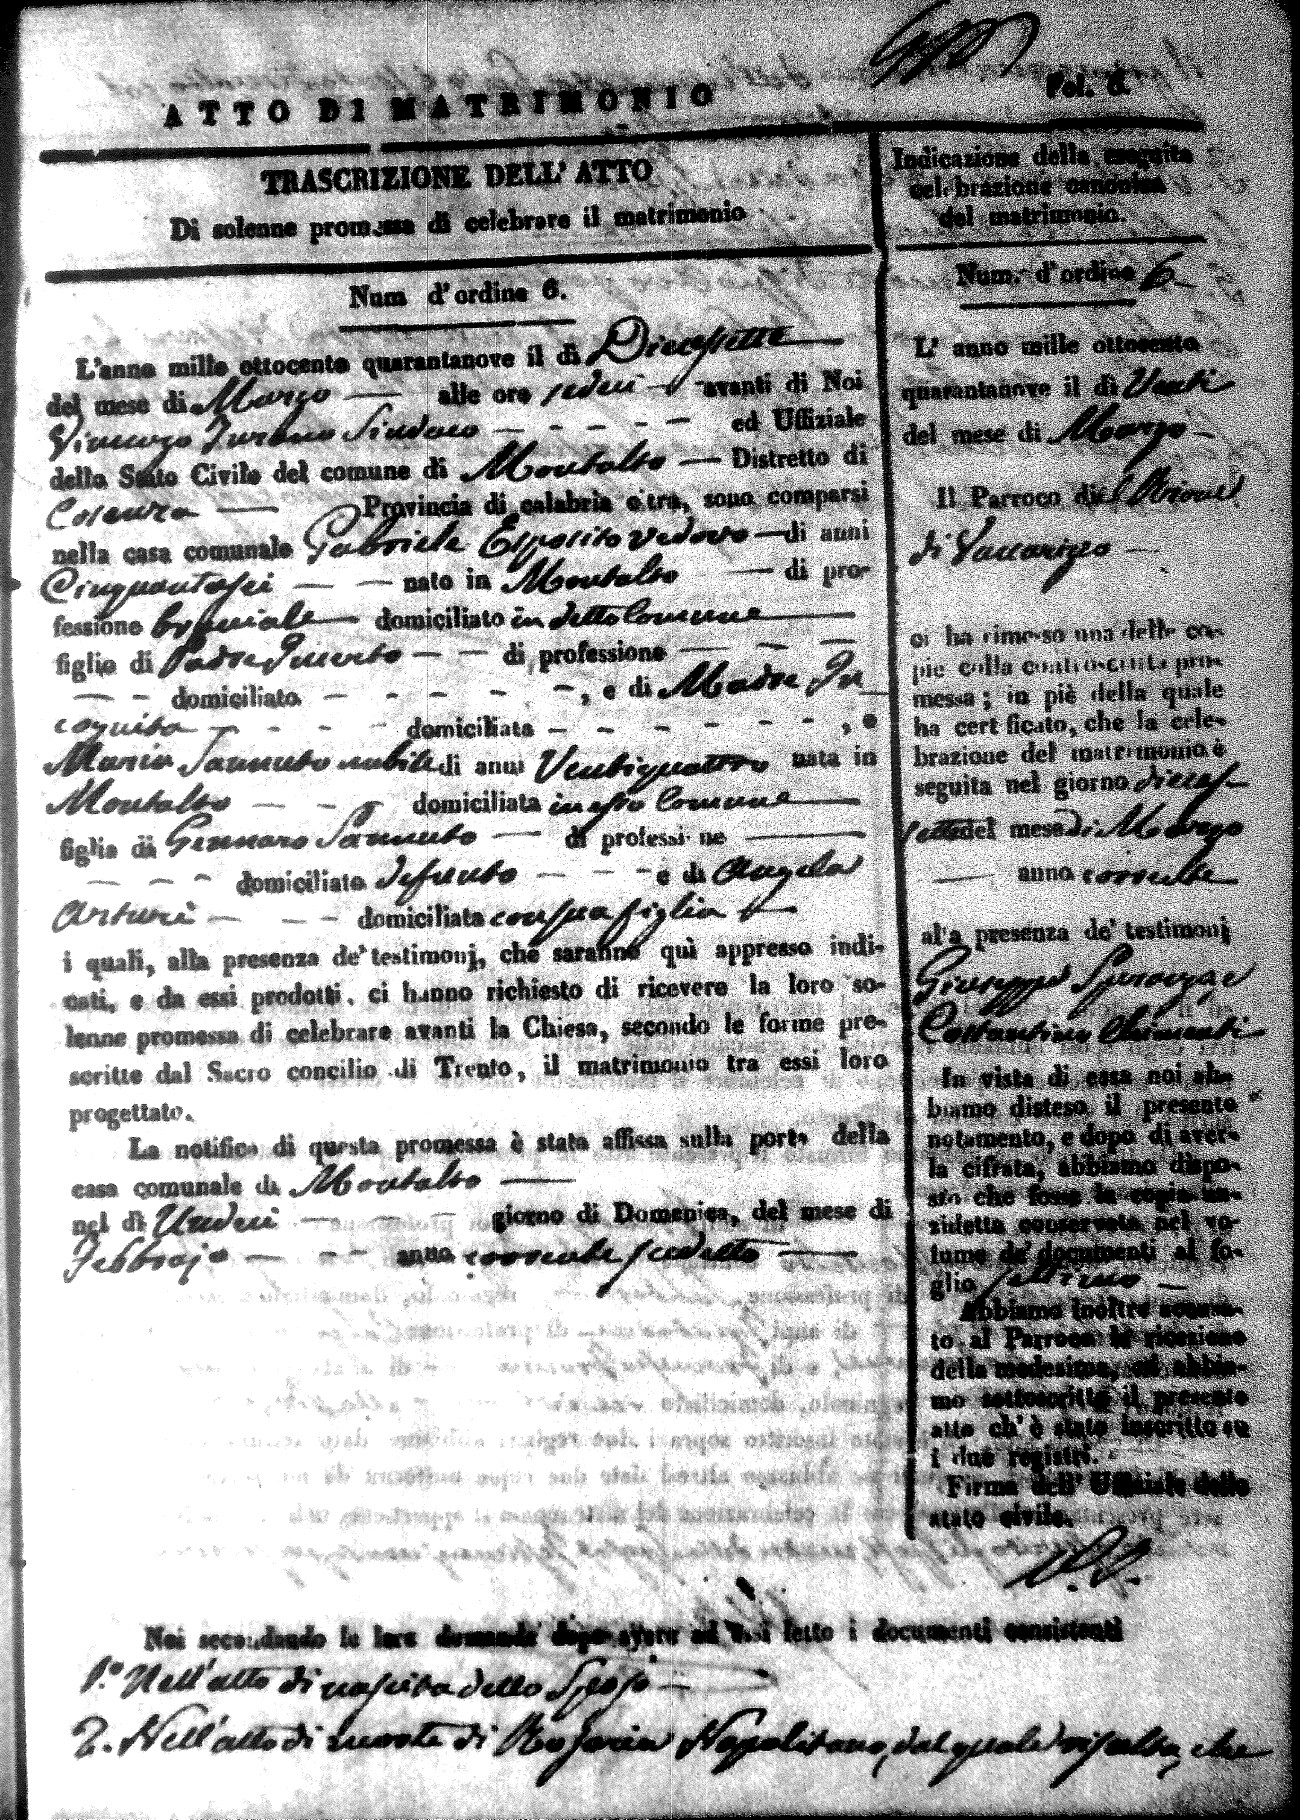 Fol. 6.
ATTO DI MATRIMONIO
TRASCRIZIONE DELL' ATTO
Di solenne promessa di celebrare il matrimonio
Num d'ordine 6.
L'anno mille ottocento quarantanove il dì Diecessette
del mese di Marzo alle ore sedeci avanti di Noi
Vincenzo Turano Sindaco ed Uffiziale
dello Stato Civile del comune di Montalto Distretto di
Cosenza Provincia di calabria citra, sono comparsi
nella casa comunale Gabriele Esposito vedovo di anni
Cinquantasei nato in Montalto di pro-
fessione braciale domiciliato in detto Comune
figlio di Padre Incerto di professione
domiciliato , e di Madre In
cognita domiciliata , e
Maria Sannuto nubile di anni Ventiquattro nata in
Montalto domiciliata in esso Comune
figlia di Gennaro Sannuto di professione
domiciliato defunto e di Angela
Arturi domiciliata con sua figlia
i quali, alla presenza de' testimonj, che saranno quì appresso indi-
cati, e da essi prodotti, ci hanno richiesto di ricevere la loro so-
lenne promessa di celebrare avanti la Chiesa, secondo le forme pre-
scritte dal Sacro concilio di Trento, il matrimonio tra essi loro
progettato.
La notifica di questa promessa è stata affissa sulla porta della
casa comunale di Montalto
nel dì Undeci giorno di Domenica, del mese di
Febbrajo anno corrente sudetto
Indicazione della eseguita
celebrazione canonica
del matrimonio.
Num. d'ordine 6
L' anno mille ottocento
quarantanove il dì Venti
del mese di Marzo
Il Parroco di
di Vaccarizzo
ci ha rimesso una delle co-
pie della controscritta pro-
messa; in piè della quale
ha cert ficato, che la cele-
brazione del matrimonio è
seguita nel giorno dieces-
sette del mese di Marzo
anno corrente
al'a presenza de' testimonj
Giuseppe Speranza, e
Costantino Chimenti
In vista di essa noi ab-
biamo disteso il presente
notamento, e dopo di aver-
la cifrata, abbiamo dispo-
sto che fosse la copia an-
zidetta conservata nel vo-
lume de' documenti al fo-
glio settimo
Abbiamo inoltre accusa-
to al Parroco la ricezione
della medesima, ed abbia-
mo sottoscritto il presente
atto ch' è stato inscritto su
i due registri.
Firma dell' Uffiziale dello
stato civile.
Noi secondando la loro domanda dopo avere ad essi letto i documenti consistenti
1.° Nell'atto di nascita dello Sposo
2. Nell'atto di morte di Rosaria Napolitano, dal quale risulta, che